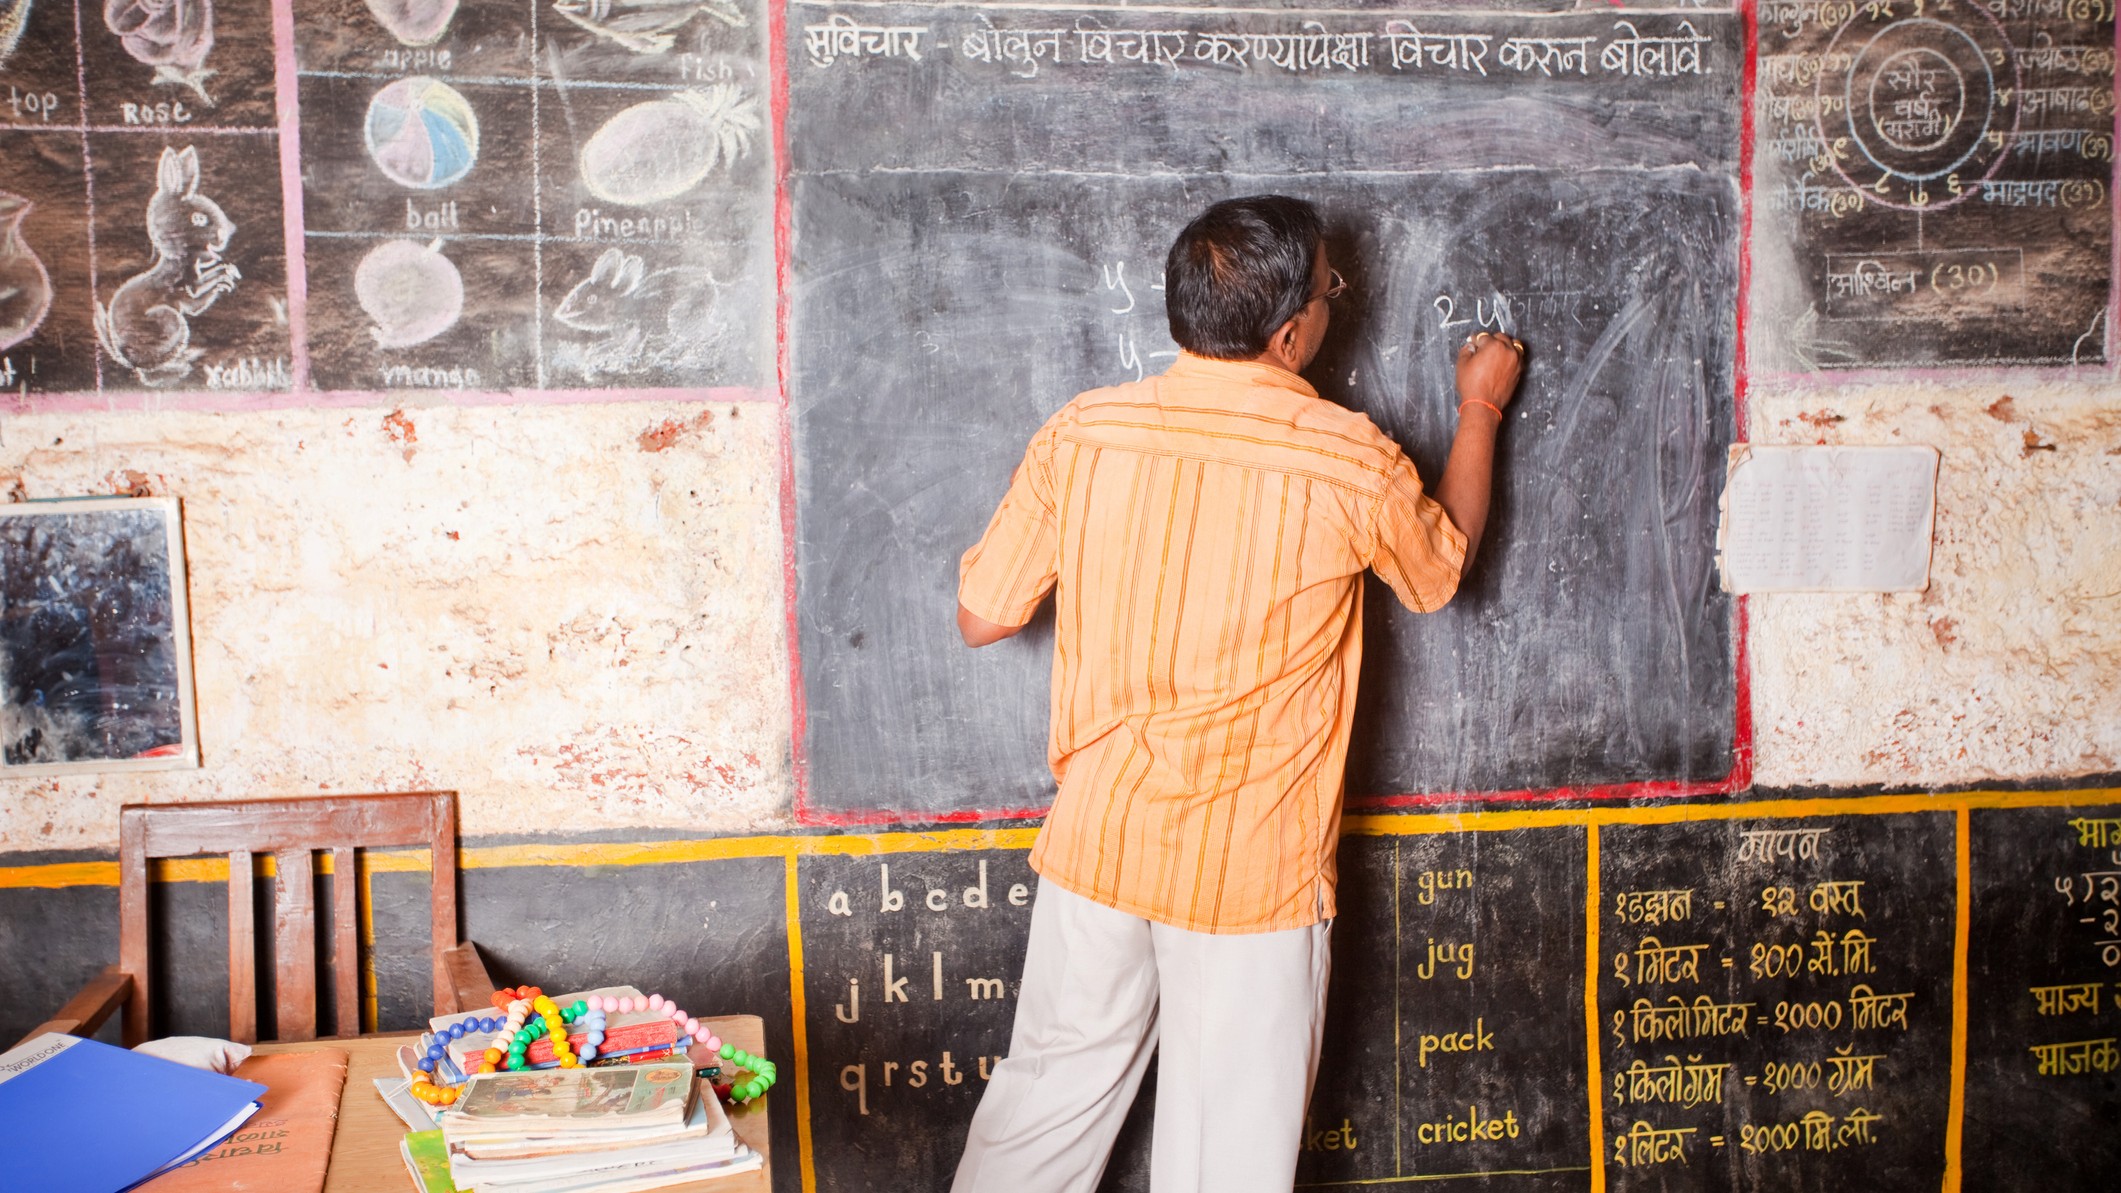 apple
fish
top
Rose
ball
Pineapple
mango
rabbit
सुविचार - बोलुन विचार करण्यापेक्षा विचार करुन बोलावे.
y -
y -
2y
फाल्गुन(३०) १२ १ २ वैशाख(३१)
३ ज्येष्ठ(३१)
४ आषाढ
५ श्रावण(३१)
८ ७ ६ भाद्रपद(३१)
सौर
वर्ष
आश्विन (30)
a b c d e
j k l m
q r s t u
gun
jug
pack
cricket
मापन
१ डझन = १२ वस्तू
१ मिटर = १०० सें.मि.
१ किलोमिटर = १००० मिटर
१ किलोग्रॅम = १००० ग्रॅम
१ लिटर = १००० मि.ली.
भाज्य
WORLDONE